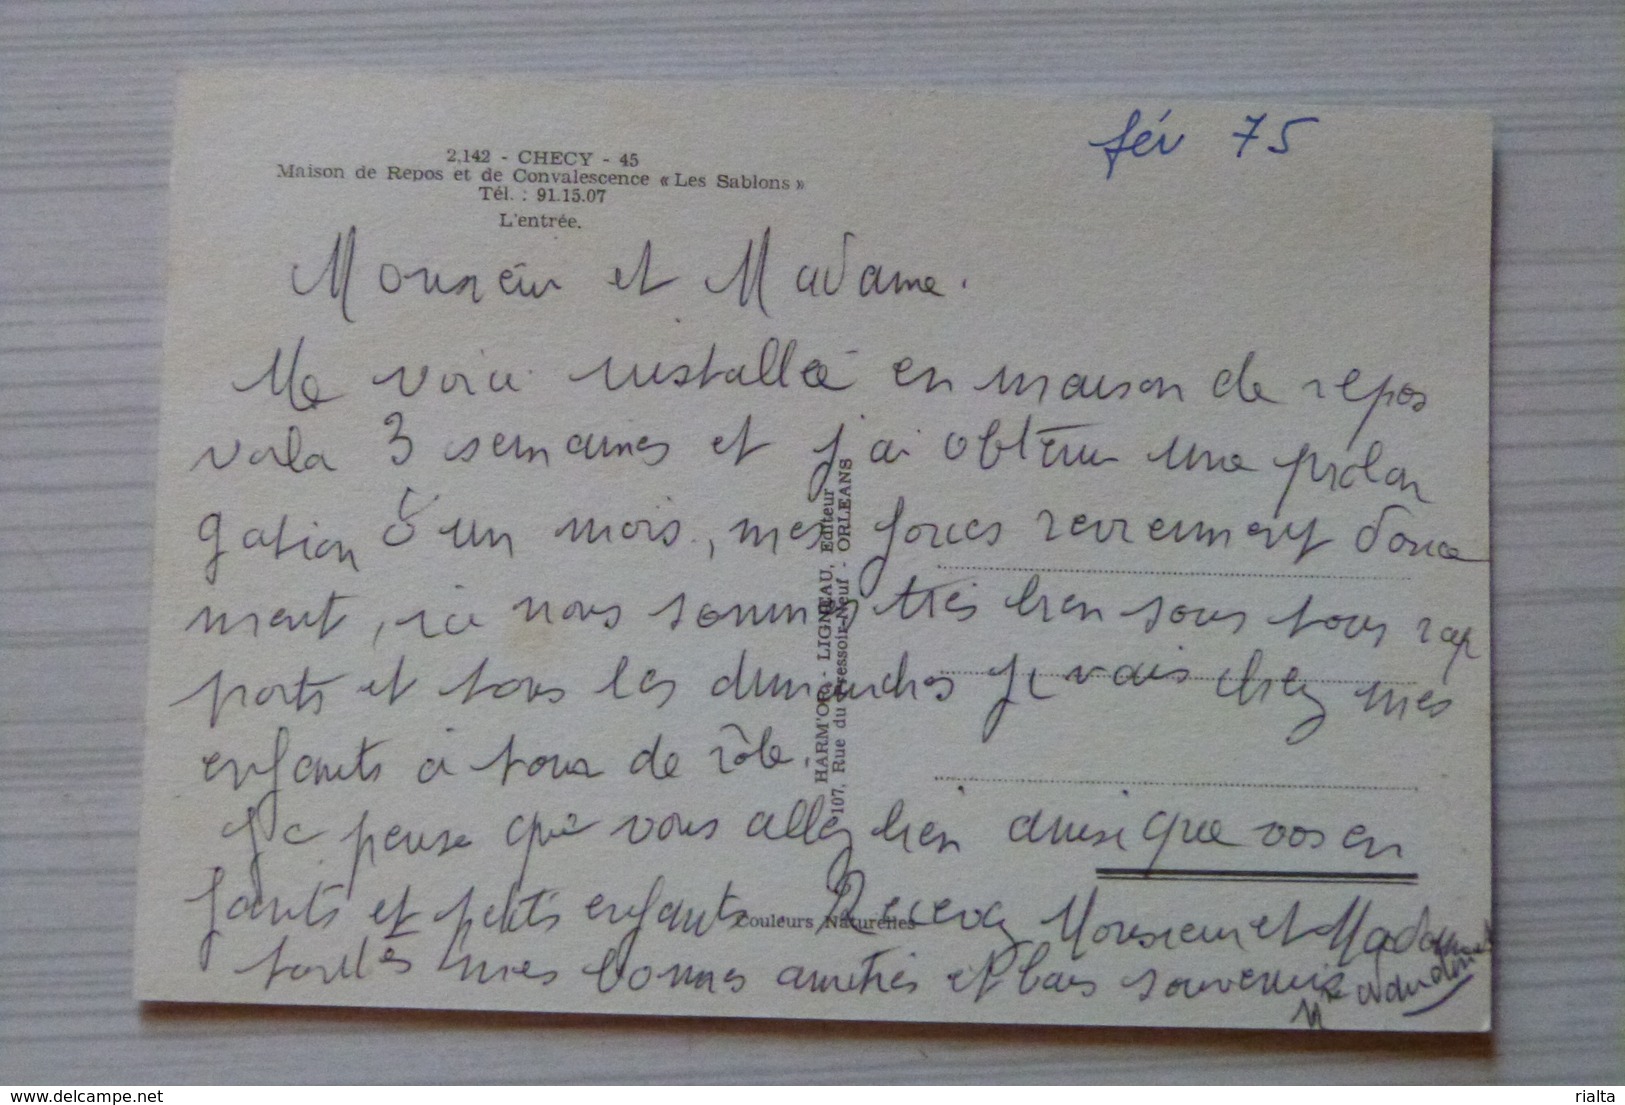 fév 75
2.142 - CHECY - 45
Maison de Repos et de Convalescence « Les Sablons »
Tél. : 91.15.07
L'entrée.
Monsieur et Madame.
Me voici installée en maison de repos
voila 3 semaines et j'ai obtenu une prolon
gation d'un mois, mes forces reviennent douce
ment, ici nous sommes très bien sous tous rap
ports et tous les dimanches je vais chez mes
enfants à tour de rôle.
Je pense que vous allez bien ainsi que vos en
fants et petits enfants Recevez Monsieur et Madame
toutes mes bonnes amitiés et bons souvenirs
HARM'OR - LIGNEAU, Editeur
107, Rue du Pressoir-Neuf - ORLEANS
Couleurs Naturelles
www.delcampe.net
rialta